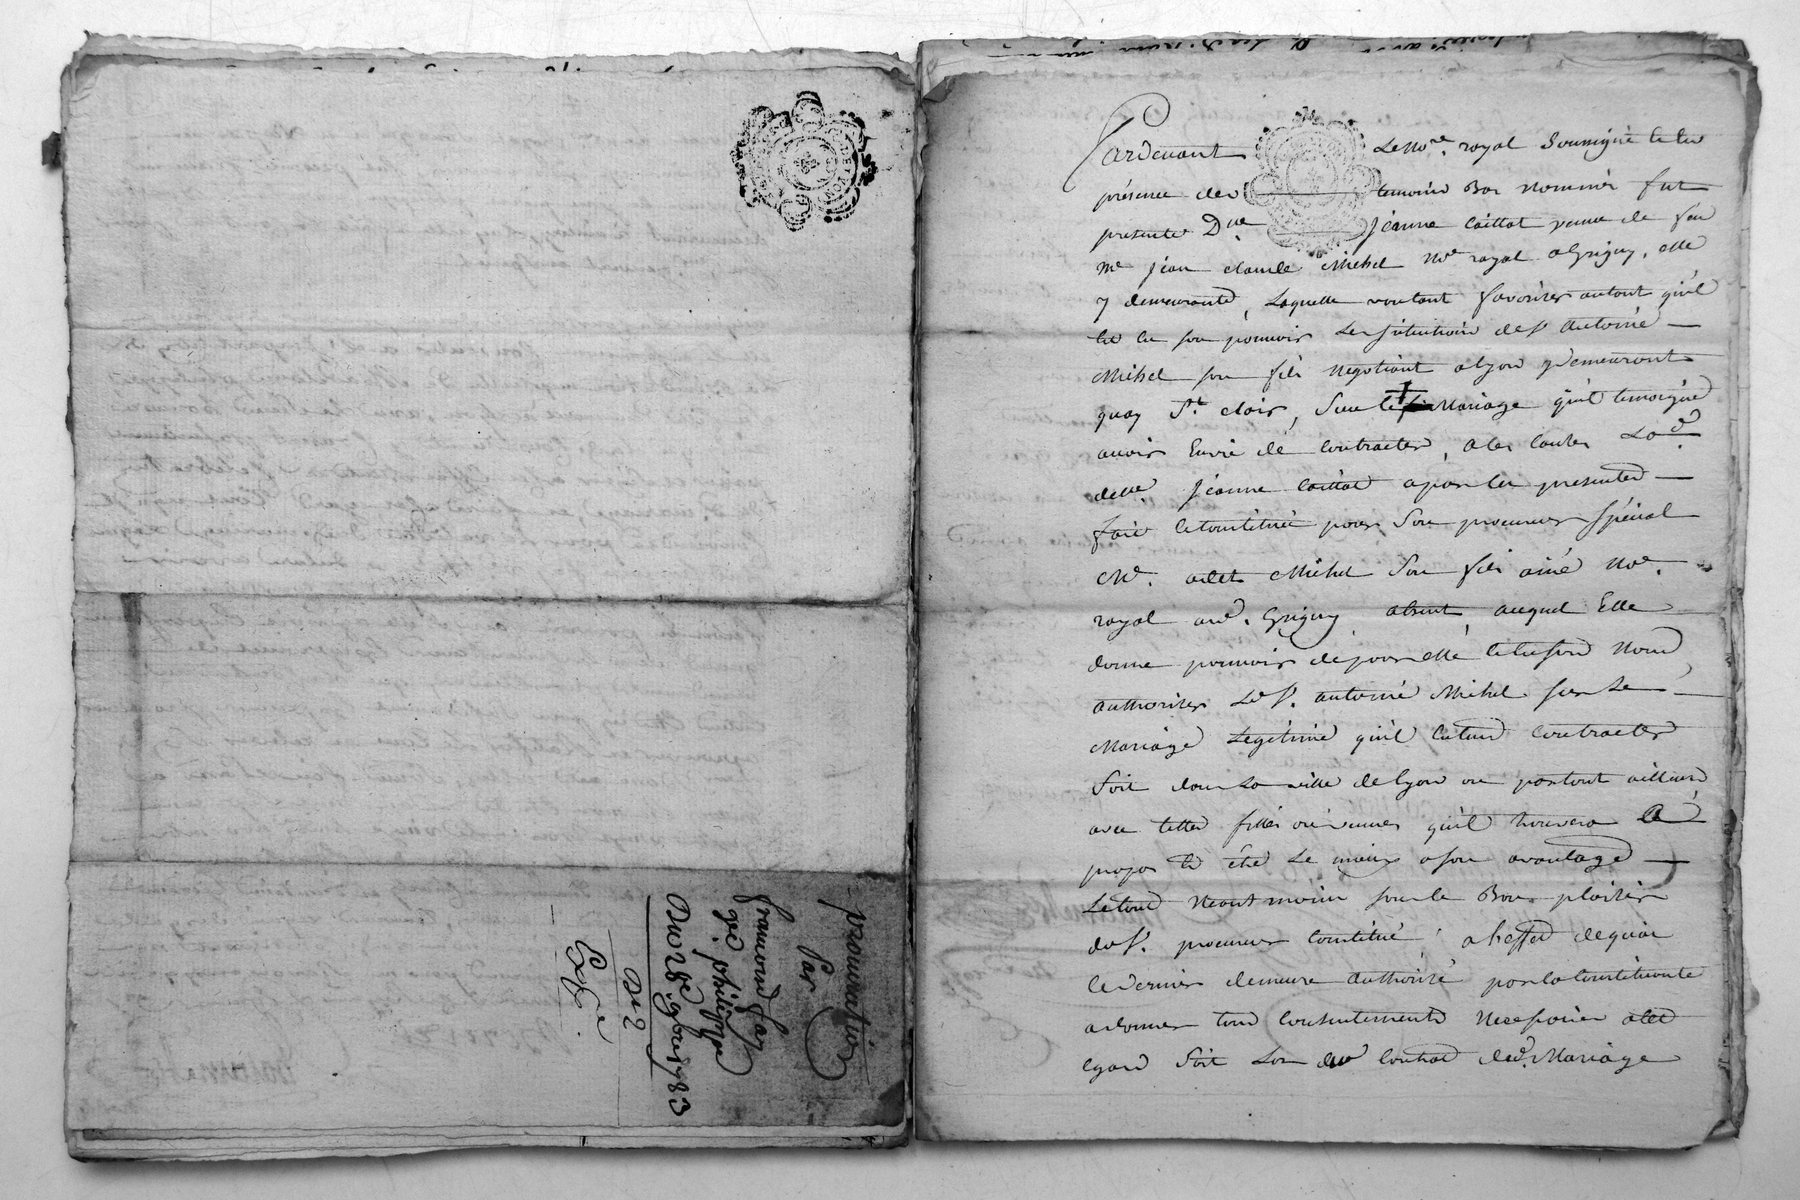 procuration
par
francoise far
philippe
Du 28e 9bre 1783
Du 2
Expé
Pardevant Le Nore. royal Soussigné et en
présence des temoins Bas nommés fut
presente Dlle Jeanne Caillot veuve de feu
Me Jean Claude Michel Nre royal a Grigny, elle
y demeurante, Laquelle voulant favoriser autant qu'il
est en son pouvoir Les Intentions de sr antoine
Michel son fils negotiant a lyon y demeurant
quay St. clair, Sur le Mariage qu'il temoigne
avoir Envie de Contracter, a les causes Lad.
delle. Jeanne Caillot a par les presentes
fait et Constitué pour Son procureur Spécial
Me. Michel Son fils ainé Nore.
royal aud. Grigny absent, auquel Elle
donne pouvoir de pour elle et en son Nom
authoriser Led sr. antoine Michel sur Le
Mariage Legitime qu'il Entend Contracter
Soit dans La ville de lyon ou partout ailleurs
avec telles filles ou veuves qu'il trouvera a
propos et être Le mieux a son avantage
Le tout Neantmoins sous le Bon plaisir
dud sr. procureur Constitué, a l'effet de quoi
ce dernier demeure authorisé par la Constituante
a donner tous Consentements Necessaires a cet
egard Soit Lors du Contrat dud. Mariage